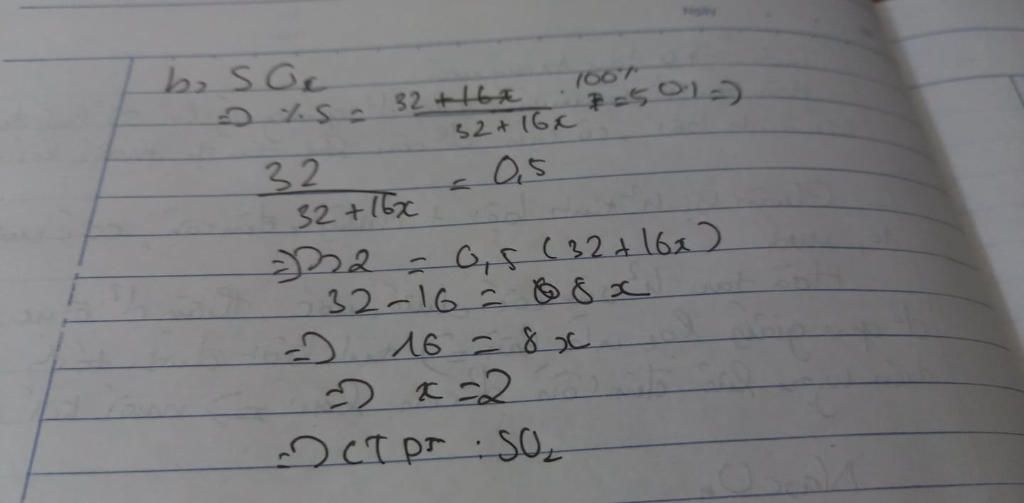 b, SOx
=> %S = 32 +16x / 32+16x . 100% = 50% =>
32 / 32+16x = 0,5
=> 32 = 0,5 (32+16x)
32 - 16 = 8x
=> 16 = 8x
=> x = 2
=> CTPT : SO₂